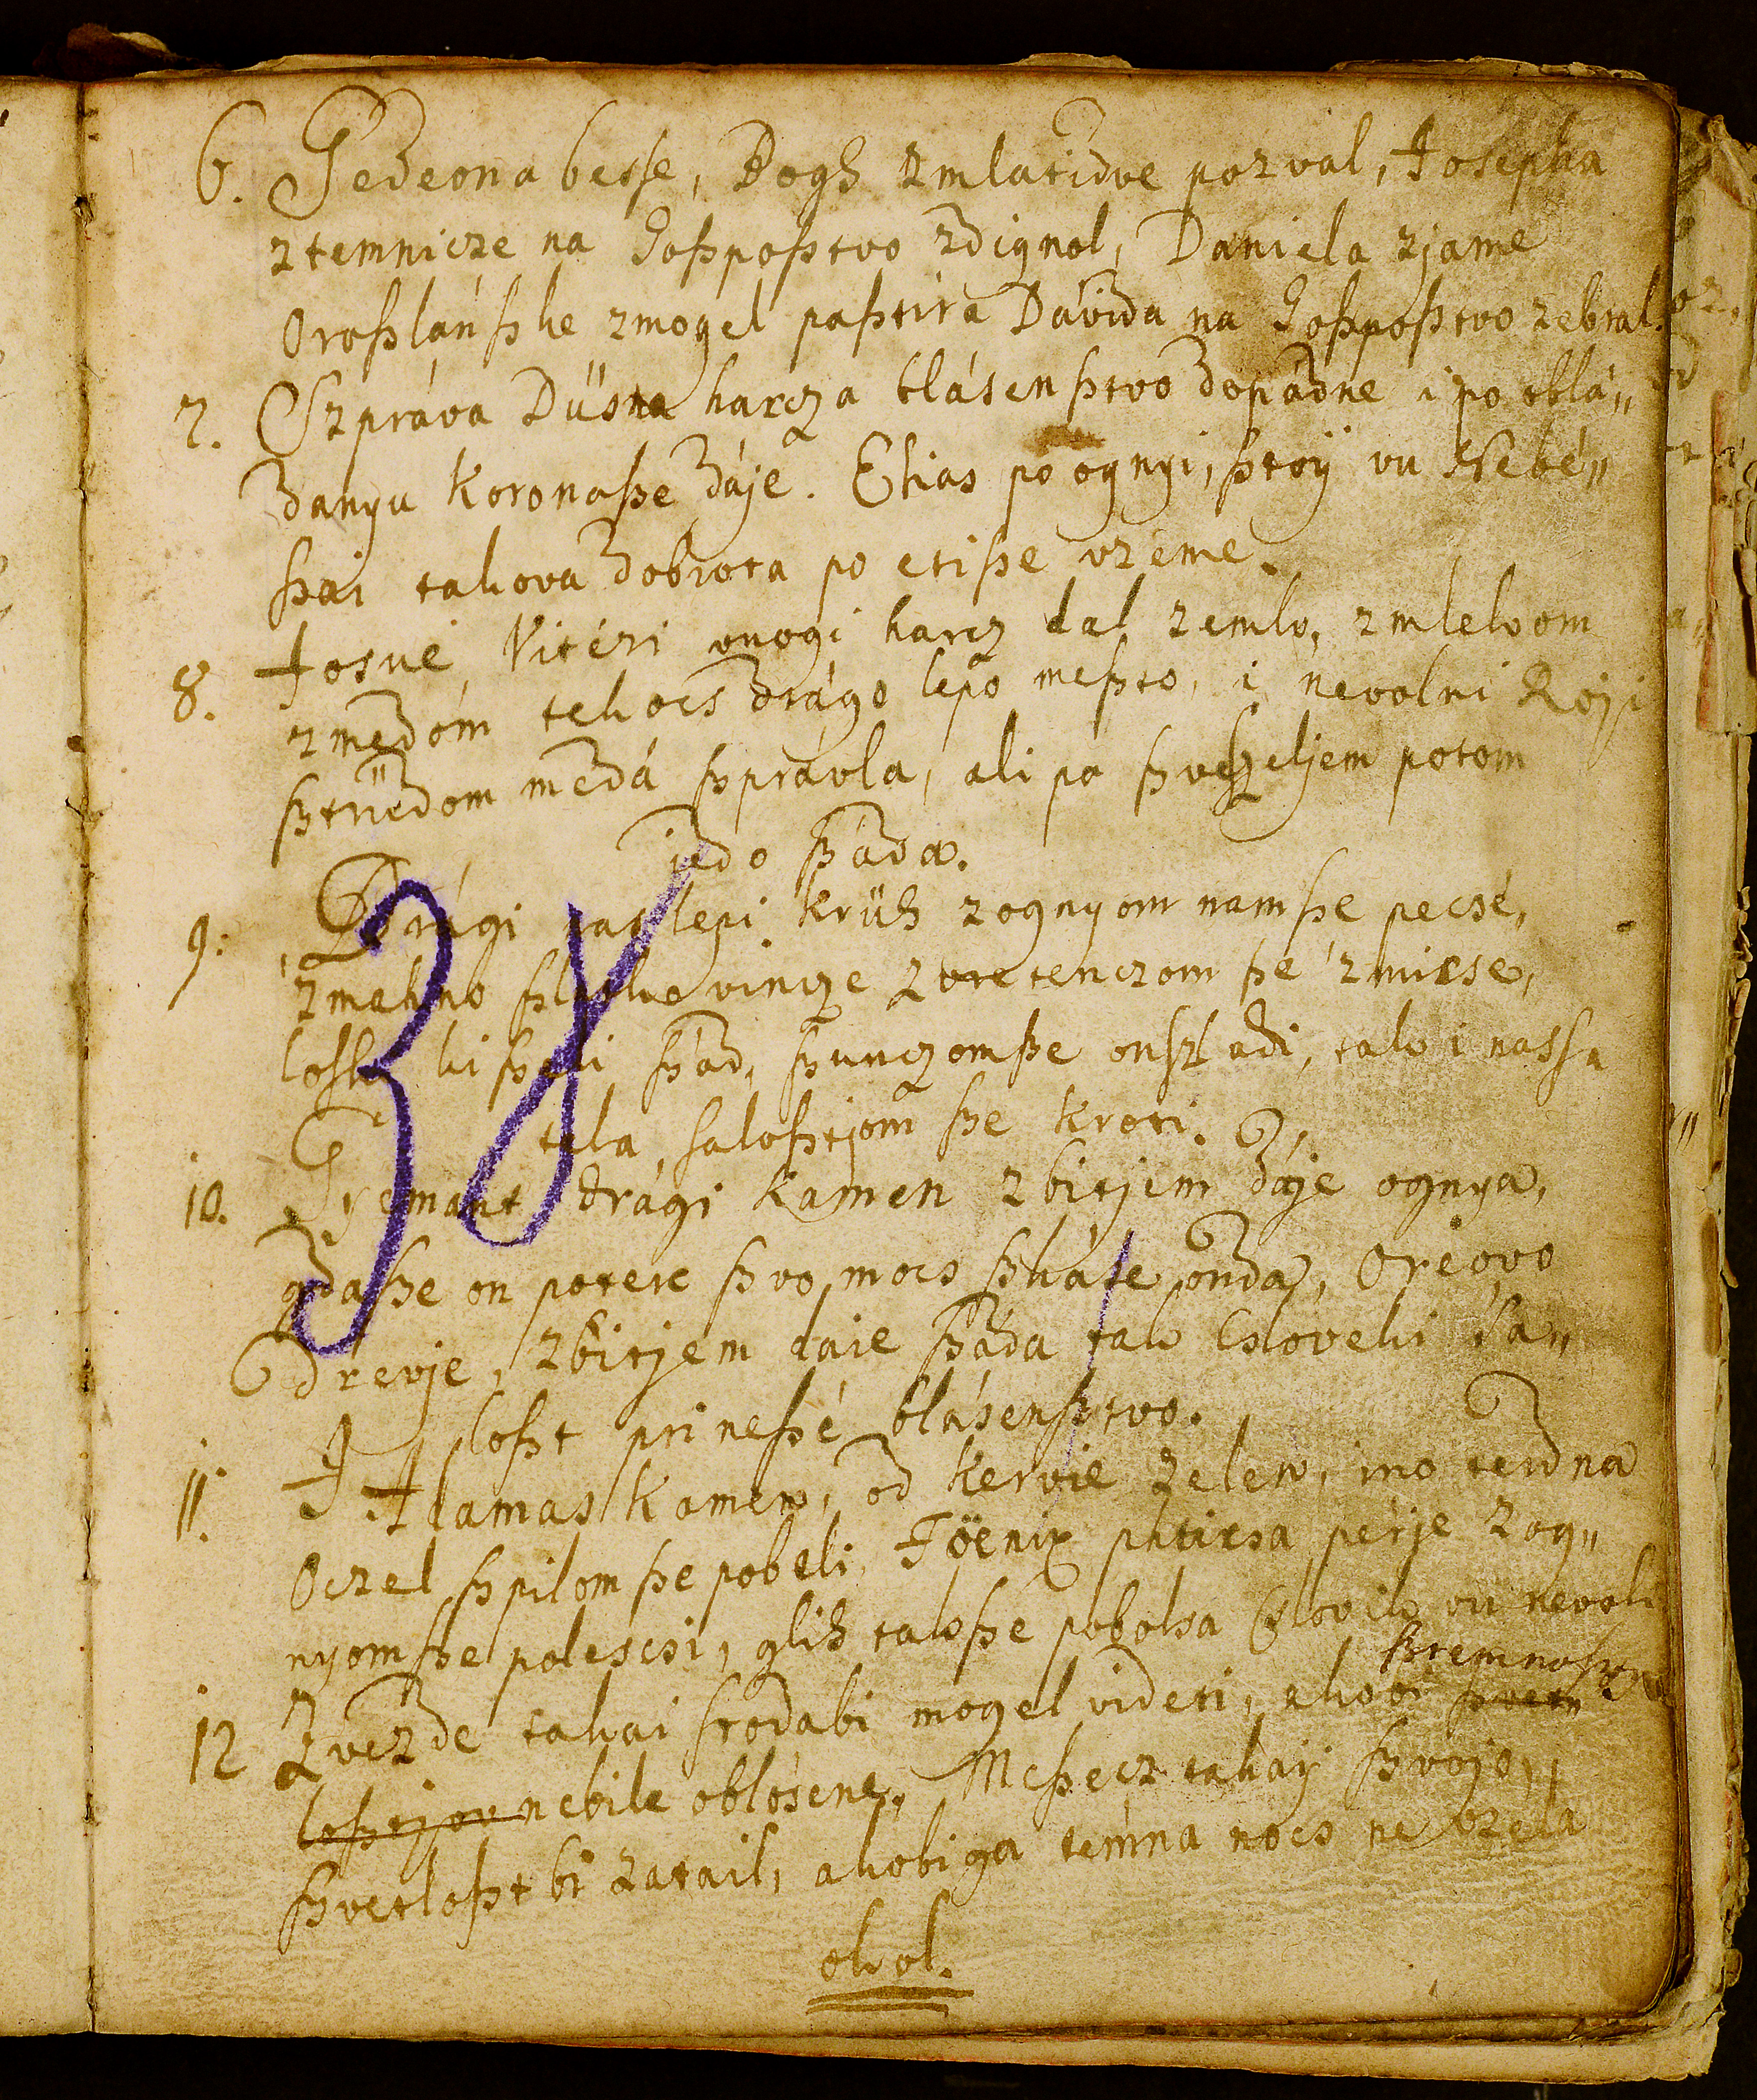 6. Gedeona besse, Bogh zmlatidve pozval, Josepha
ztemnicze na Goßpoßtvo zdignol, Daniela zjame
Oroßlánßke zmogel paßtira Dávida na Goßpoßtvo zebral.
7. Szpráva Düsna harcza blásenßtvo dopádne i po obla„
danyu Koronaße dáje. Elias po ognyi, ßtoÿ vu Nebé„
ßai takova dobrota po etiße vzeme.
8. Josue, Vitézi mnogi harcz dal zemlo, zmlekom
zmedóm tekocs drágo lepo meßto, i nevolni Roji
ßtrüdom medá ßprávla, ali po ßveßzeljem potom
jedo ßáda.
9. Drági nas lepi krüh zognyom namße pecsé,
zmehno ßlatko vincze zvretenczom ße zmirse,
loskoki ßeki ßád, ßunczomße onßladi, tako i nassa
tela, saloßtjom ße kroti.
10. Gyemant drági Kamen zbitjem dáje ognya,
gdaße on potere ßvo mocs ßkáse onda, Oreovo
drevje, zbitjem dáie ßáda tak Cslovek i sa„
loßt prineßé blásenßtvo.
11. I Adamas Kamen, od kervie zelen, ino terdna
Oczel ßpilom ße pobeli, Föenix phticsa perje zog„
nyomße polescsi, glih takoße pobolsa Cslovik vu nevoli
12 Zvezde takai srodabi mogel videti, akobi ßvetu ßtemnoßtju
loßtjov nebile oblosene, Meßecz takaÿ ßvojo,
ßvetloßt bi zatail, akobi ga temna nocs ne vzela
okol.
38